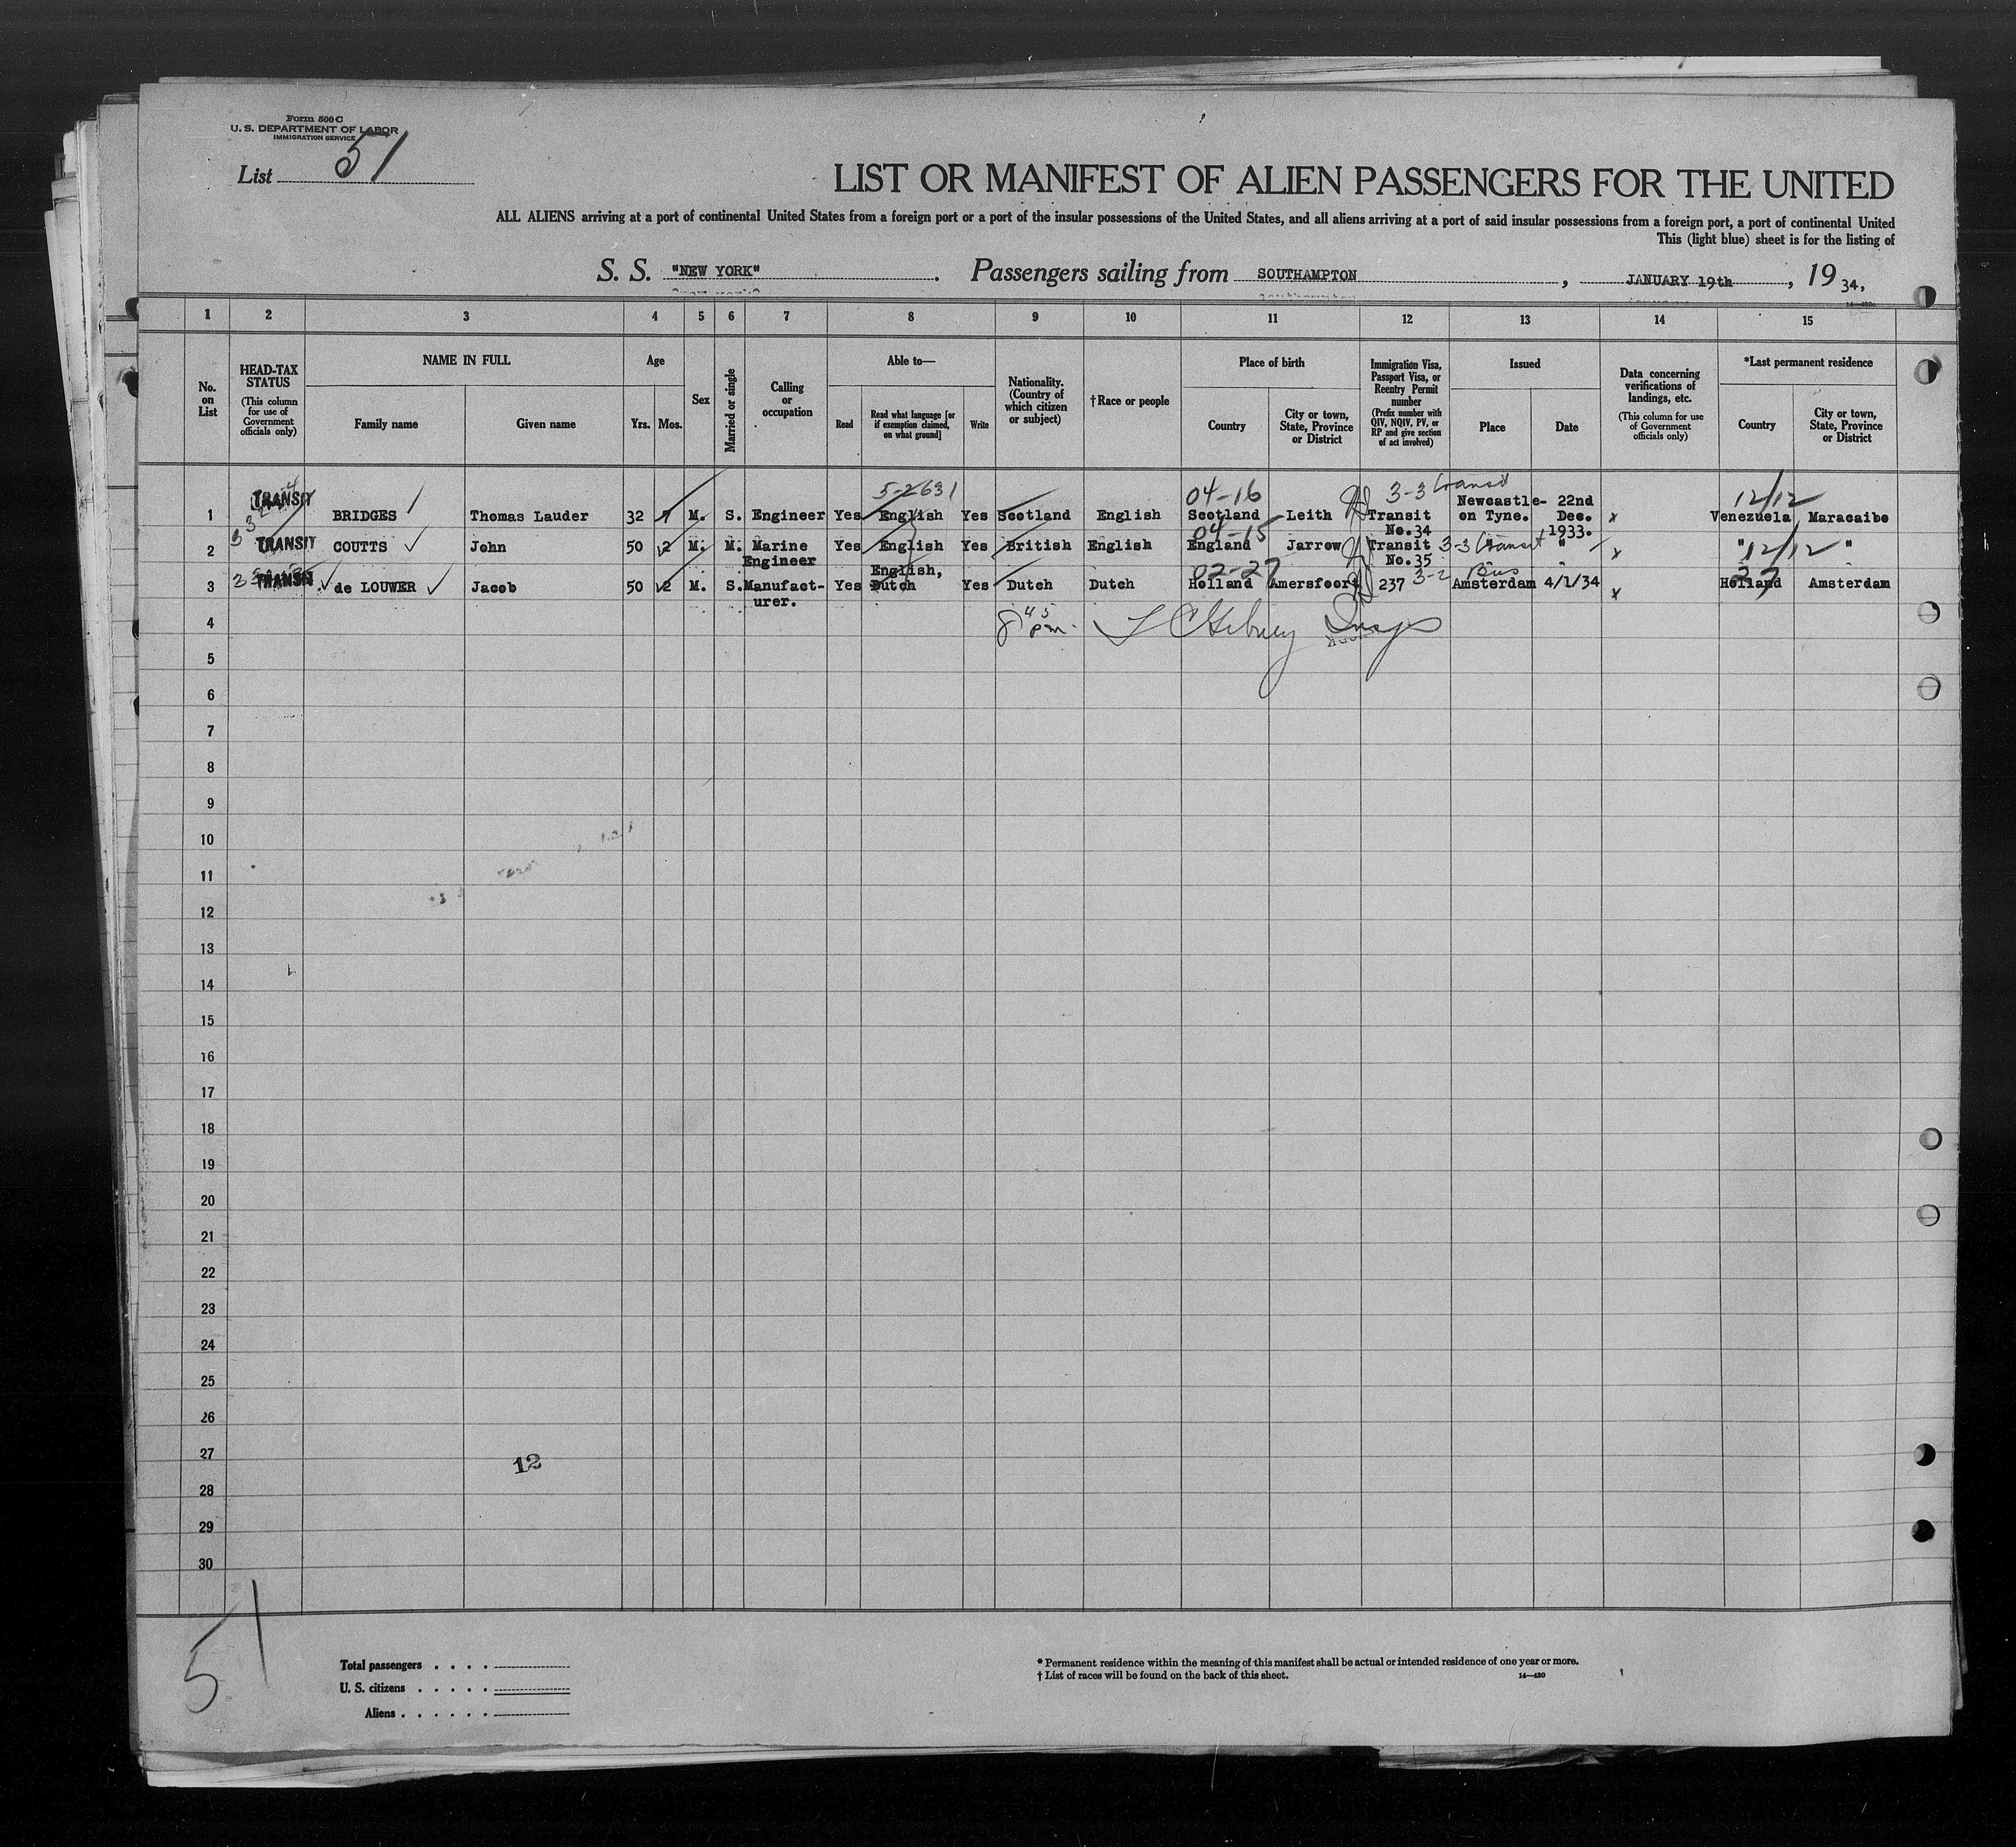 Form 500 C
U. S. DEPARTMENT OF LABOR
IMMIGRATION SERVICE
List 51
LIST OR MANIFEST OF ALIEN PASSENGERS FOR THE UNITED
ALL ALIENS arriving at a port of continental United States from a foreign port or a port of the insular possessions of the United States, and all aliens arriving at a port of said insular possessions from a foreign port, a port of continental United
This (light blue) sheet is for the listing of
S. S. "NEW YORK". Passengers sailing from SOUTHAMPTON, JANUARY 19th, 19 34,
1 2 3 4 5 6 7 8 9 10 11 12 13 14 15
No. on List
HEAD-TAX STATUS
(This column for use of Government officials only)
NAME IN FULL
Family name
Given name
Age
Yrs. Mos.
Sex
Married or single
Calling or occupation
Able to—
Read
Read what language [or if exemption claimed, on what ground]
Write
Nationality. (Country of which citizen or subject)
†Race or people
Place of birth
Country
City or town, State, Province or District
Immigration Visa, Passport Visa, or Reentry Permit number
(Prefix number with QIV, NQIV, PV, or RP and give section of act involved)
Issued
Place
Date
Data concerning verifications of landings, etc.
(This column for use of Government officials only)
*Last permanent residence
Country
City or town, State, Province or District
5-2631 04-16 3-3 transit 12/12
1 TRANSIT BRIDGES Thomas Lauder 32 7 M. S. Engineer Yes English Yes Scotland English Scotland Leith Transit No.34 Newcastle-on Tyne. 22nd Dec. 1933. x Venezuela Maracaibo
04-15 3-3 transit 12/12
2 TRANSIT COUTTS John 50 2 M. M. Marine Engineer Yes English Yes British English England Jarrow Transit No.35 " " x " "
02-27 3-2 Bus 27
3 TRANSIT de LOUWER Jacob 50 2 M. S. Manufacturer. Yes English, Dutch Yes Dutch Dutch Holland Amersfoort 237 Amsterdam 4/1/34 x Holland Amsterdam
4 8 45 pm. Insp
5
6
7
8
9
10
11
12
13
14
15
16
17
18
19
20
21
22
23
24
25
26
27 12
28
29
30
51
Total passengers . . . .
U. S. citizens . . . . .
Aliens . . . . . .
* Permanent residence within the meaning of this manifest shall be actual or intended residence of one year or more.
† List of races will be found on the back of this sheet. 14—430